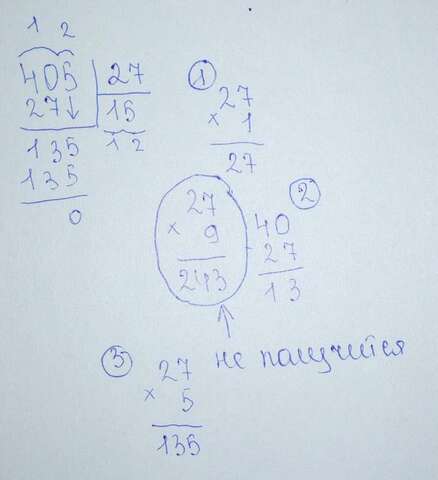 1 2
405 | 27
27↓ | 15
135 1 2
135
0
① 27
× 1
27
27
× 9
243
② 40
- 27
13
не получится
③ 27
× 5
135